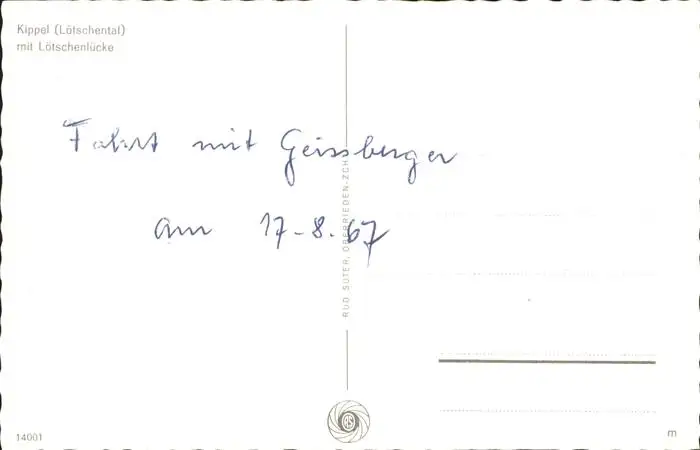 Kippel (Lötschental)
mit Lötschenlücke
Fahrt mit Geissberger
am 17-8.67
RUD. SUTER, OBERRIEDEN-ZCH
RS
14001
m